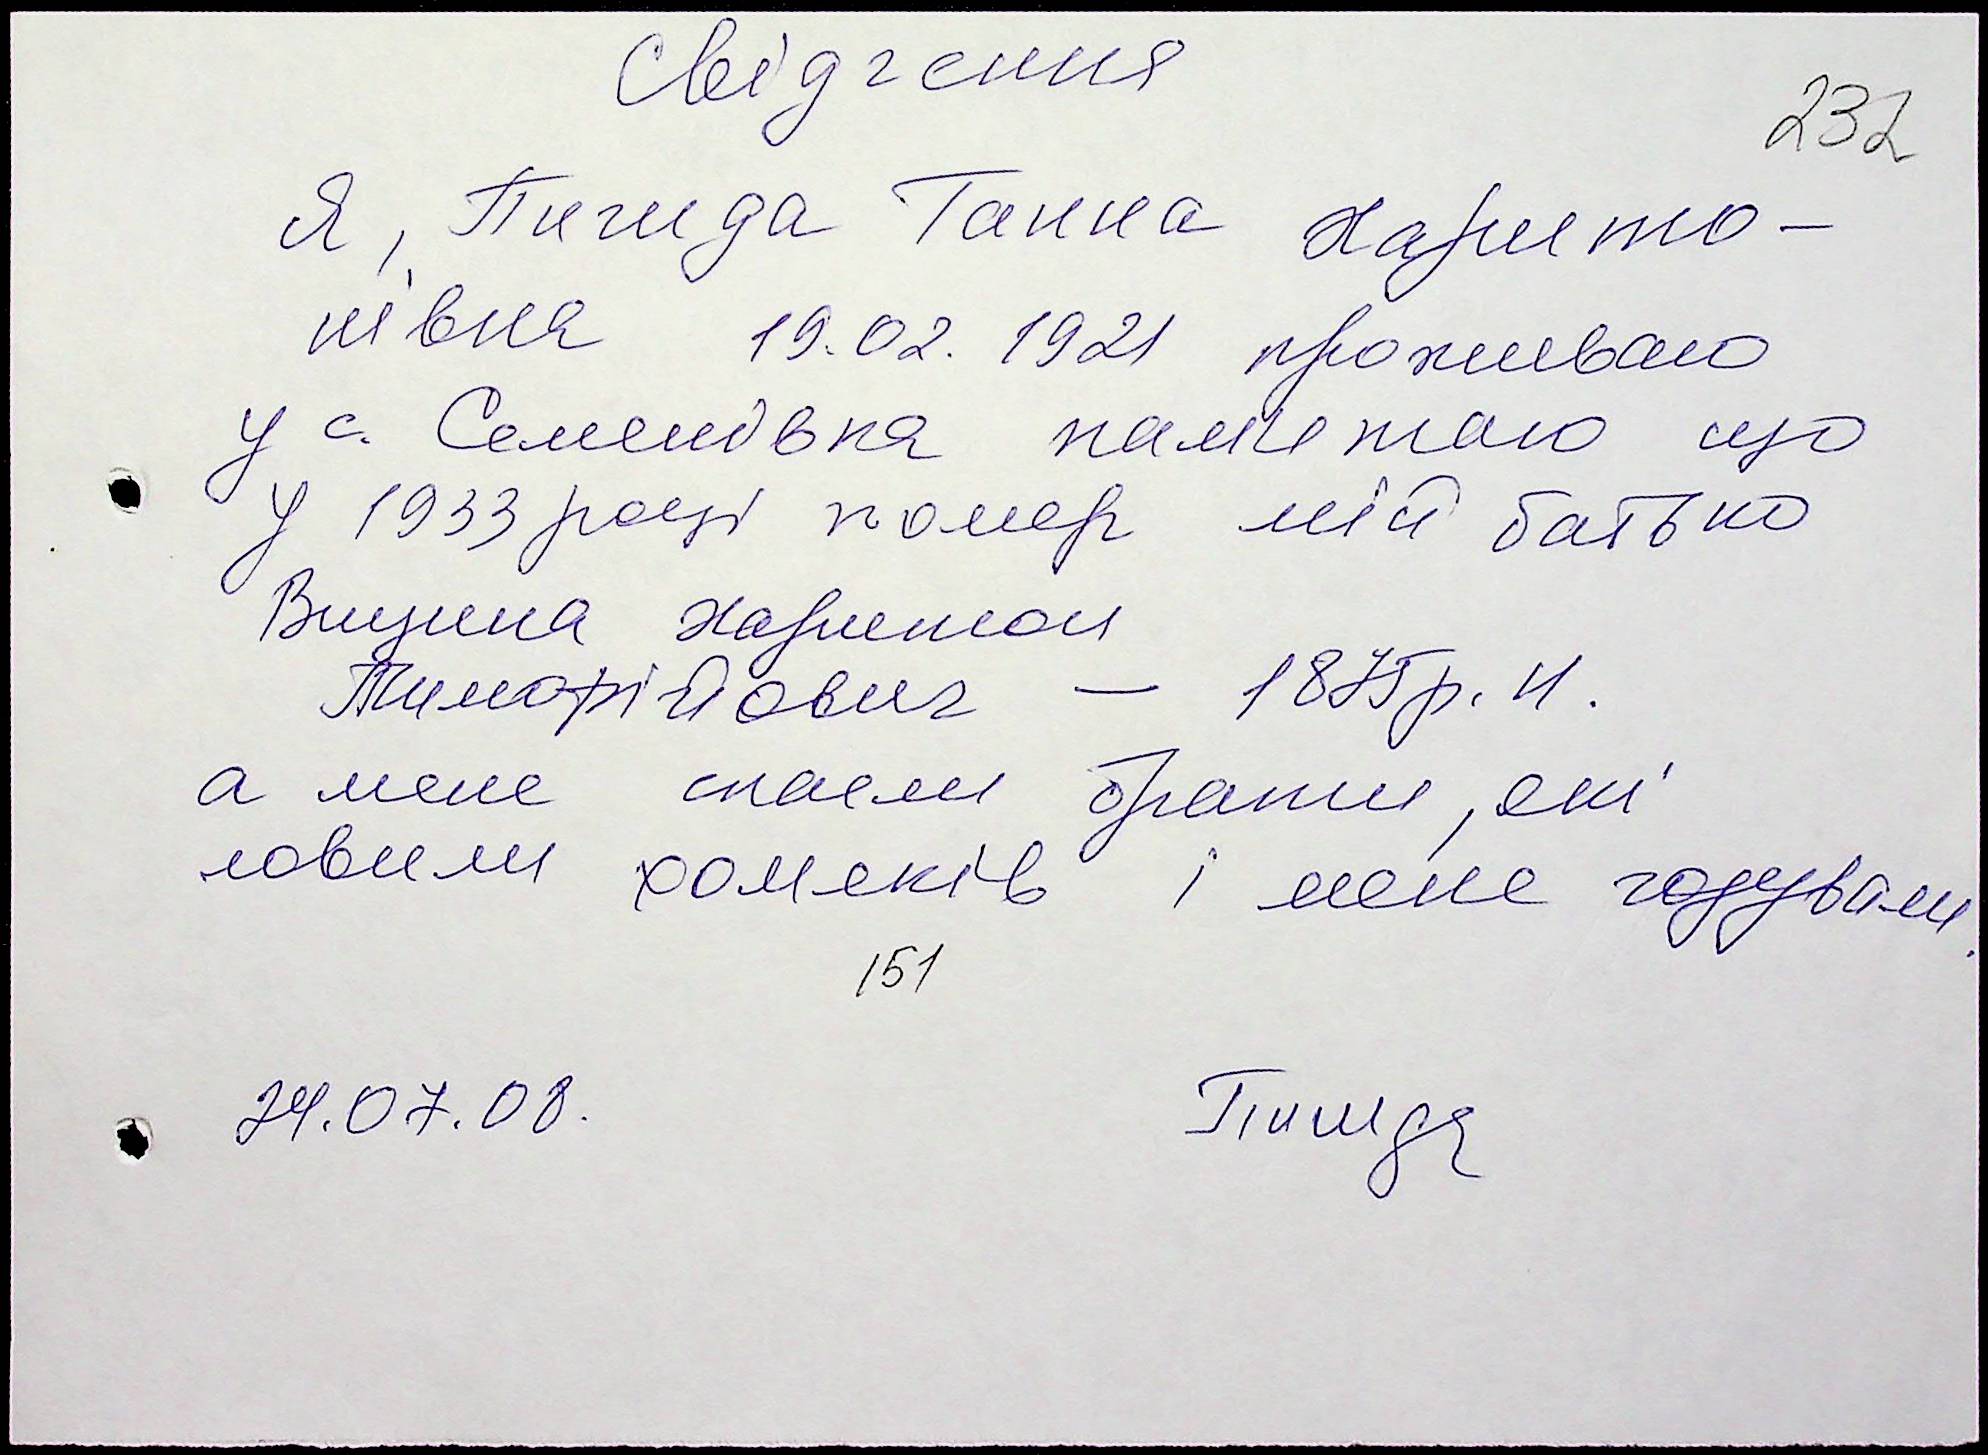 Свідчення
232
Я, Пигида Ганна Харито-
нівна 19.02.1921 проживаю
у с. Семенівка памятаю що
у 1933 році помер мій батько
Вищина Харитон
Тимофійович — 1875 р. н.
а мене спасли брати, які
ловили хомяків і мене годували.
151
24.07.08.